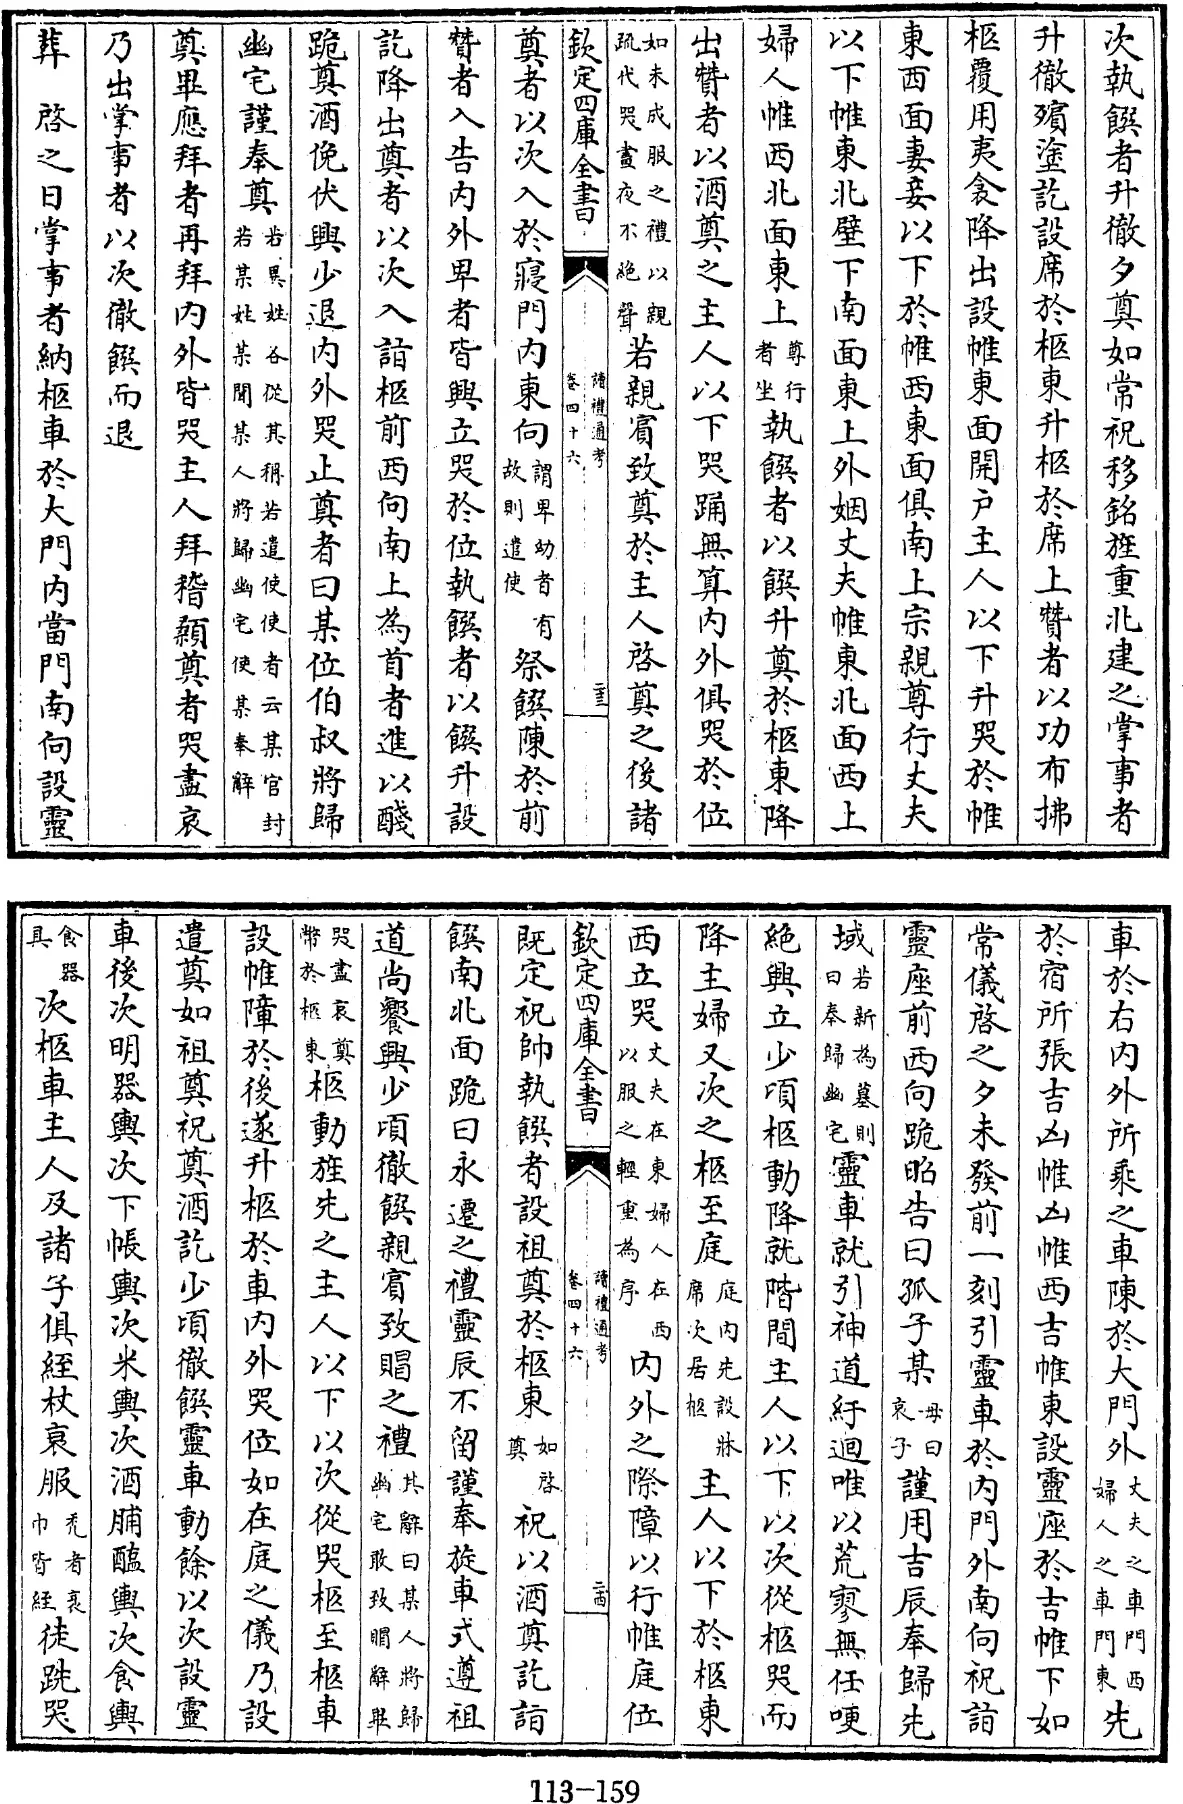 次執饌者升徹夕奠如常祝移銘旌重北建之掌事者
升徹殯塗訖設席於柩東升柩於席上贊者以功布拂
柩覆用夷衾降出設帷東面開户主人以下升哭於帷
東西面妻妾以下於帷西東面俱南上宗親尊行丈夫
以下帷東北壁下南面東上外姻丈夫帷東北面西上
婦人帷西北面東上尊行者坐執饌者以饌升奠於柩東降
出贊者以酒奠之主人以下哭踊無算内外俱哭於位
如未成服之禮以親疏代哭晝夜不絶聲若親賓致奠於主人啓奠之後諸
欽定四庫全書 讀禮通考 卷四十六 二三
奠者以次入於寢門内東向謂卑幼者有故則遣使祭饌陳於前
贊者入告内外卑者皆興立哭於位執饌者以饌升設
訖降出奠者以次入詣柩前西向南上為首者進以醆
跪奠酒俛伏興少退内外哭止奠者曰某位伯叔將歸
幽宅謹奉奠若異姓各從其稱若遣使使者云某官封若某姓某聞某人將歸幽宅使某奉辭
奠畢應拜者再拜内外皆哭主人拜稽顙奠者哭盡哀
乃出掌事者以次徹饌而退
葬 啓之日掌事者納柩車於大門内當門南向設靈
車於右内外所乘之車陳於大門外丈夫之車門西婦人之車門東先
於宿所張吉凶帷凶帷西吉帷東設靈座於吉帷下如
常儀啓之夕未發前一刻引靈車於内門外南向祝詣
靈座前西向跪昭告曰孤子某母曰哀子謹用吉辰奉歸先
域若新為墓則曰奉歸幽宅靈車就引神道紆迴唯以荒寥無任哽
絶興立少頃柩動降就階間主人以下以次從柩哭而
降主婦又次之柩至庭庭内先設牀席次居柩主人以下於柩東
西立哭丈夫在東婦人在西以服之輕重為序内外之際障以行帷庭位
欽定四庫全書 讀禮通考 卷四十六 二四
既定祝帥執饌者設祖奠於柩東如啓奠祝以酒奠訖詣
饌南北面跪曰永遷之禮靈辰不留謹奉旋車式遵祖
道尚饗興少頃徹饌親賓致賵之禮其辭曰某人將歸幽宅敢致賵辭畢
哭盡哀奠幣於柩東柩動旌先之主人以下以次從哭柩至柩車
設帷障於後遂升柩於車内外哭位如在庭之儀乃設
遣奠如祖奠祝奠酒訖少頃徹饌靈車動餘以次設靈
車後次明器輿次下帳輿次米輿次酒脯醢輿次食輿
食器具次柩車主人及諸子俱絰杖衰服秃者裹巾皆絰徒跣哭
113-159